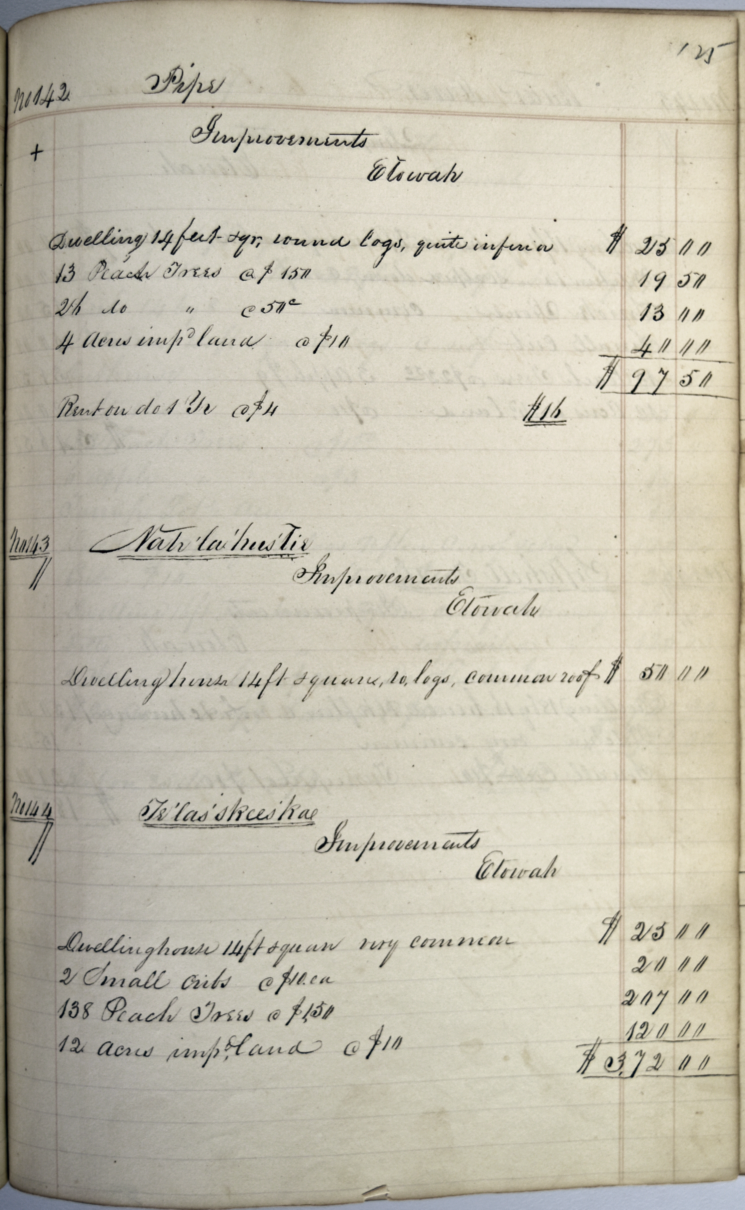 125
No 142 Pipe
+
Improvements
Etowah
Dwelling 14 feet sqr, round logs, quite inferior $ 25 00
13 Peach Trees @ $ 150 19 50
26 do " @ 50c 13 00
4 Acres impd land @ $10 40 00
$ 97 50
Rent on do 1 Yr @ $4 $16
No 143 Nah'la'hus'tie
"
Improvements
Etowah
Dwelling house 14ft square, ro, logs, common roof $ 50 00
No 144 Te'las'skees'kae
"
Improvements
Etowah
Dwellinghouse 14ft square very common $ 25 00
2 Small cribs @ $10 ea 20 00
138 Peach Trees @ $1,50 207 00
12 acres impd land @ $10 120 00
$ 3,72 00